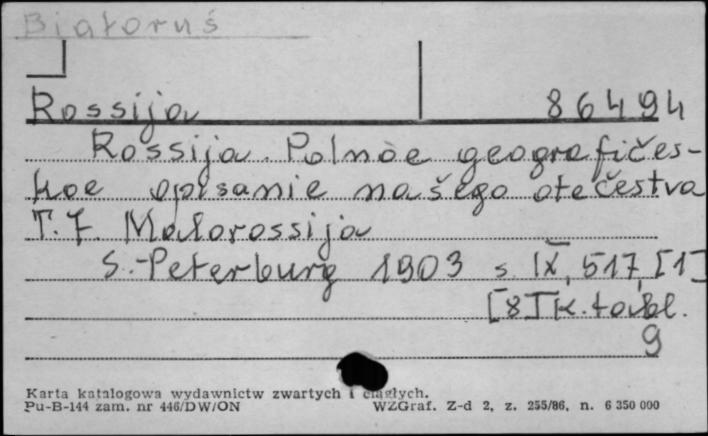 Białoruś
Rossija 86494
Rossija. Polnoe geografičes-
koe opisanie našego otečestva
T. 7. Małorossija
S.-Peterburg 1903 s. IX, 517, [1]
[8] k. tabl.
9
Karta katalogowa wydawnictw zwartych i ciągłych.
Pu-B-144 zam. nr 446/DW/ON WZGraf. Z-d 2, z. 255/86, n. 6 350 000